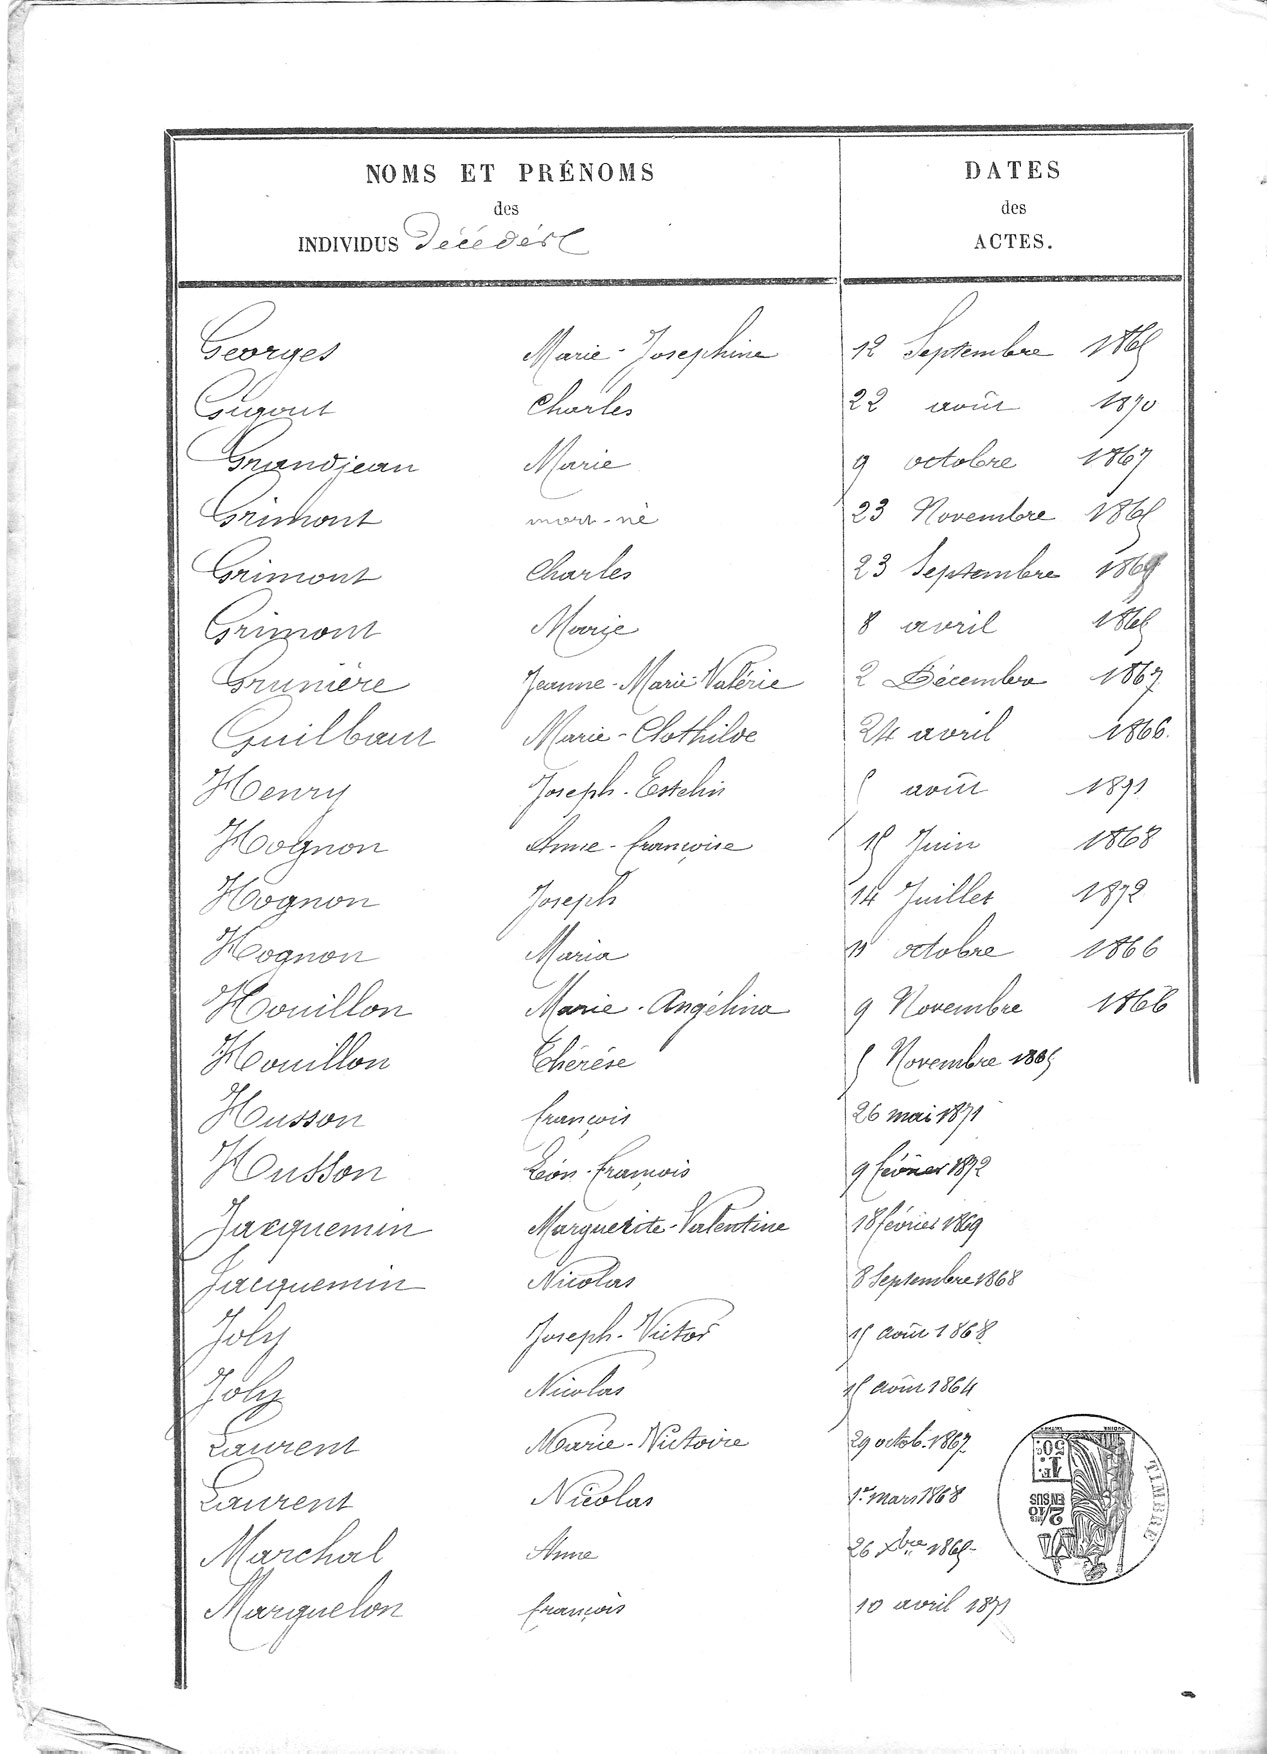 NOMS ET PRÉNOMS
des
INDIVIDUS Décédés
DATES
des
ACTES.
Georges Marie-Josephine 12 Septembre 1865
Gigout Charles 22 août 1870
Grandjean Marie 9 octobre 1867
Grimont mort-né 23 Novembre 1865
Grimont Charles 23 Septembre 1869
Grimont Marie 8 avril 1865
Grunière Jeanne-Marie-Valérie 2 Décembre 1867
Guilbaut Marie-Clothilde 24 avril 1866.
Henry Joseph-Estelin 5 août 1871
Hognon Anne-françoise 15 Juin 1868
Hognon Joseph 14 Juillet 1872
Hognon Maria 11 octobre 1866
Houillon Marie-Angélina 9 Novembre 1866
Houillon Thérése 5 Novembre 1865
Husson françois 26 mai 1871
Husson Léon-françois 9 février 1872
Jacquemin Marguerite-Valentine 18 février 1869
Jacquemin Nicolas 8 Septembre 1868
Joly Joseph-Victor 15 août 1868
Joly Nicolas 15 août 1864
Laurent Marie-Victoire 29 octob. 1867
Laurent Nicolas 1er mars 1868
Marchal Anne 26 Xbre 1865
Marguelon françois 10 avril 1871
TIMBRE
2/10 MES
EN SUS
1 F.
50 C.